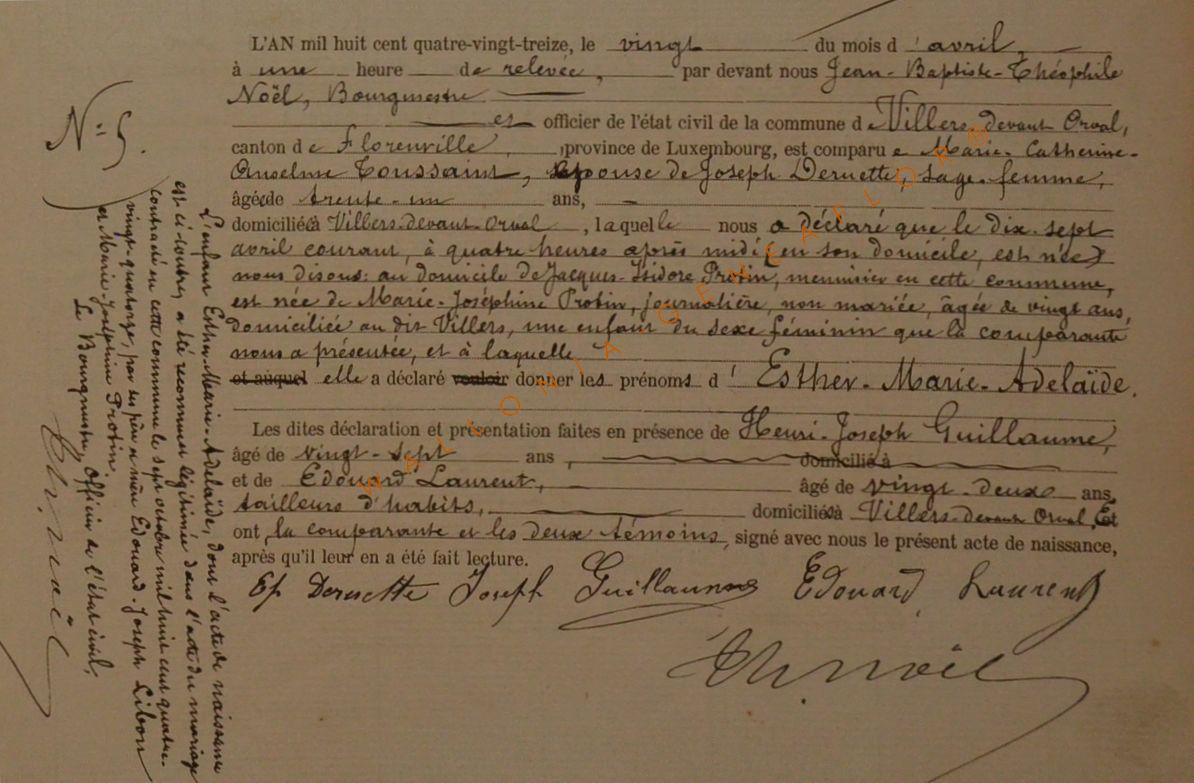 L'AN mil huit cent quatre-vingt-treize, le vingt du mois d'avril,
à une heure de relevée, par devant nous Jean-Baptiste-Théophile
Noël, Bourgmestre
et officier de l'état civil de la commune de Villers devant Orval,
canton de Florenville, province de Luxembourg, est comparue Marie-Catherine-
Anselme Toussaint, épouse de Joseph Deruette, sage-femme,
âgée de trente-un ans,
domiciliée à Villers-devant-Orval, laquelle nous a déclaré que le dix-sept
avril courant, à quatre heures après midi (en son domicile, est née)
nous disons: au domicile de Jacques-Isidore Protin, menuisier en cette commune,
est née de Marie-Joséphine Protin, journalière, non mariée, âgée de vingt ans,
domiciliée au dit Villers, une enfant du sexe féminin que la comparante
nous a présentée, et à laquelle
et auquel elle a déclaré vouloir donner les prénoms d'Esther-Marie-Adelaïde.
Les dites déclaration et présentation faites en présence de Henri-Joseph Guillaume,
âgé de vingt-sept ans, domicilié à
et de Edouard Laurent, âgé de vingt-deux ans,
tailleurs d'habits, domiciliés à Villers-devant Orval, Et
ont la comparante et les deux témoins, signé avec nous le présent acte de naissance,
après qu'il leur en a été fait lecture.
Ep Deruette Joseph Guillaume Edouard Laurent
Th Noël
N° 5.
L'enfant Esther-Marie-Adelaïde, dont l'acte de naissance
est ci-contre, a été reconnue légitimée dans l'acte du mariage
contracté en cette commune le sept octobre mil huit cent quatre-
vingt-quatorze, par ses père et mère Edouard-Joseph Libon
et Marie-Joséphine Protin.
Le Bourgmestre, Officier de l'état civil,
Th. Noël